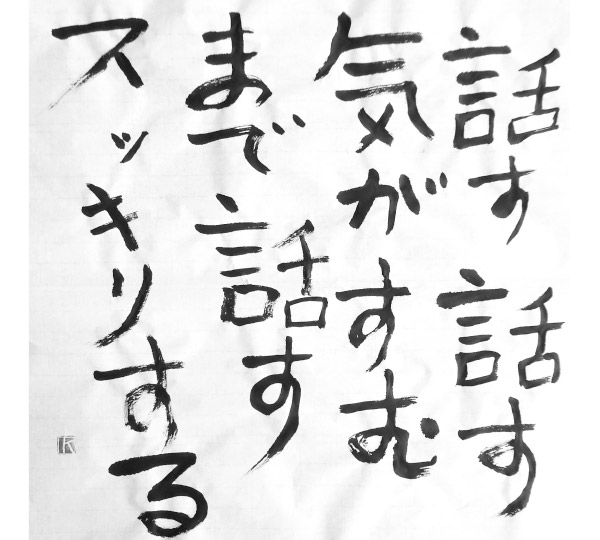 話す話す
気がすむ
まで話す
スッキリする